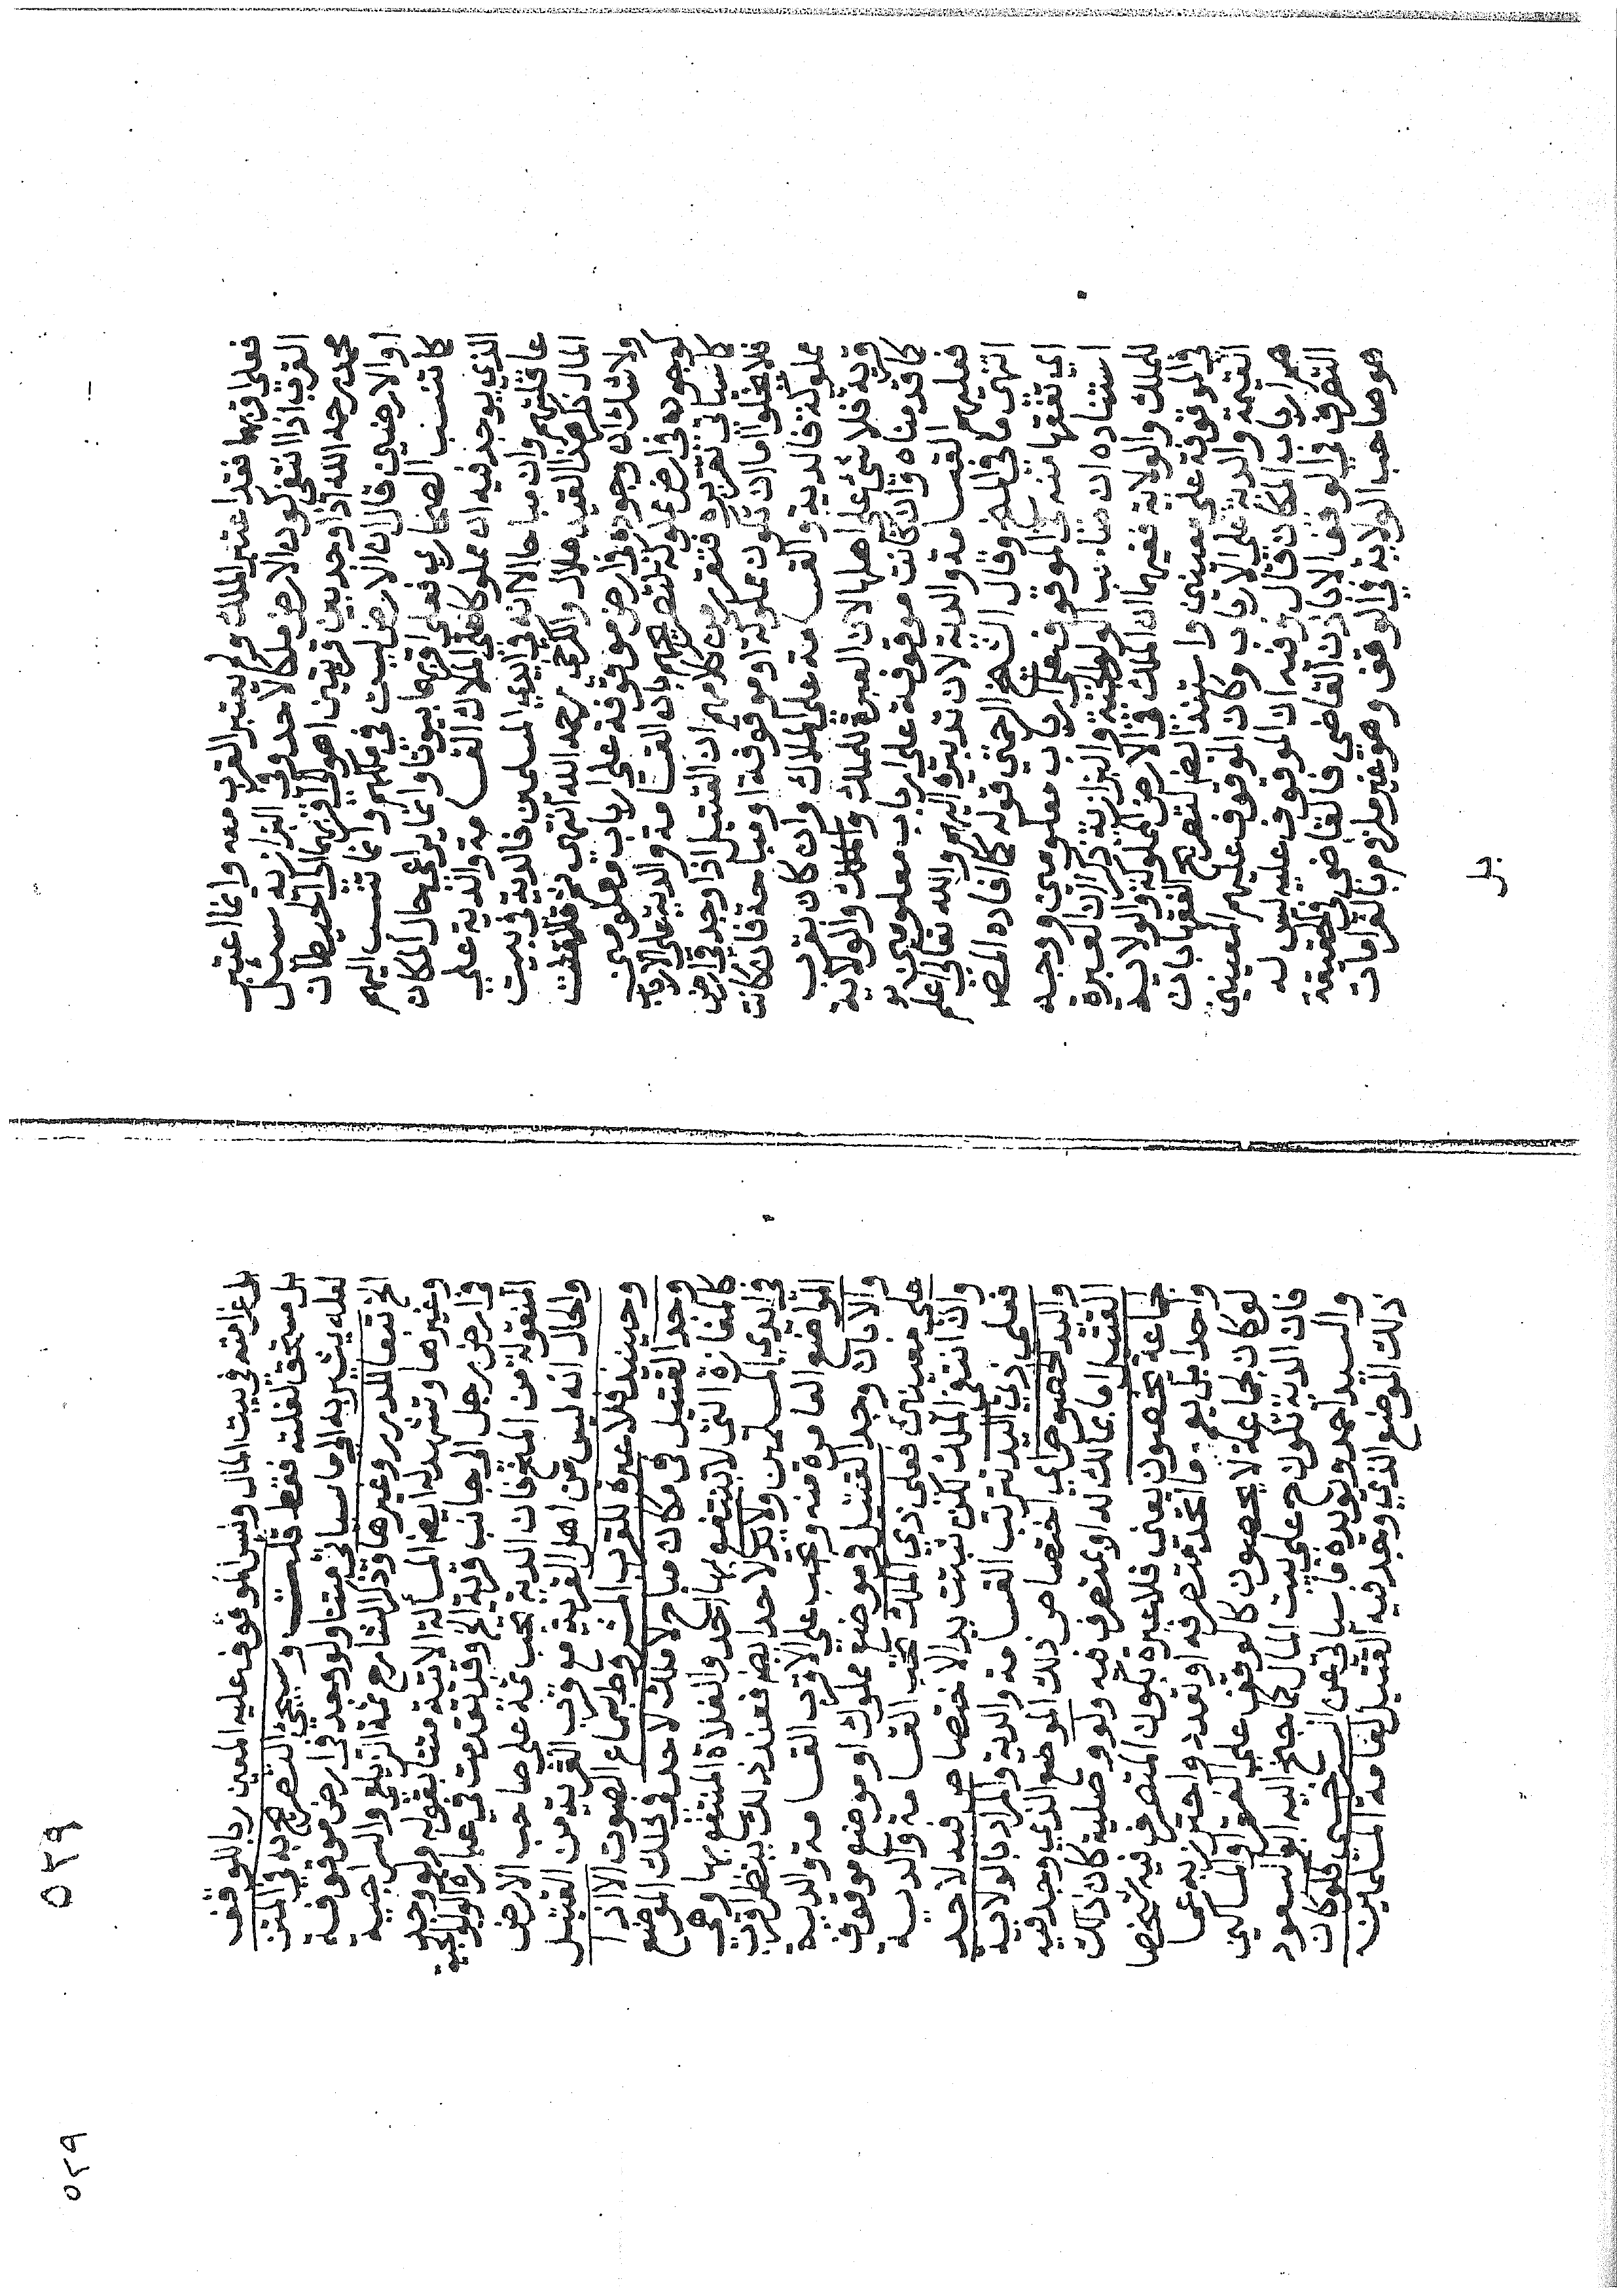 فعلى اقربهما فقد اعتبر الملك ولم يعتبر القرب معه وانما اعتبر
القرب اذا انتفى كون الارض ملكا لاحد وفي البزازيه سئل
محمد رحمه الله اذا وجد بين قريتين اهو لى اقربهما الى الحيطان
او الارضين قال ان الارض ليست في ملكهم وانما تنسب اليهم
كما تنسب الصحاري فعلى اقربهما بيوتا وانما يراعى حال المكان
الذي يوجد فيه ان مملوكا فعلى الملاك القسامة والدية على
عاقلتهم وان مباحا الا انه في ايدي المسلمين فالدية في بيت
المال ذكر هذا القيد هلال والكرخي رحمه الله انتهى ثم قلت
ولا شك ان وجوده في ارض موقوفة على ارباب معلومين
كوجوده في ارض مملوكة لتصريحهم بان القسامة والدية على الارباب
كما سياتي تقريره فتقرر من كلامهم ان القتيل اذا وجد في ارض
فلا يخلوا ما ان تكون مملوكة او موقوفة او مباحة فان كانت
مملوكة فالدية والقسامة على الملاك وان كان بقرب
قرية فلا شئ على اهلها لان العبرة للملك والملك والولاية
كما قدمناه وان كانت موقوفة على ارباب معلومين
فعليهم القسامة والدية لان تدبيره اليهم والله تعالى اعلم
انتهى ما في المنح وقال الشيخ الرحمتي قوله كما افاده المص
اي تفقها منه في الموقوف على ارباب معلومين ووجه
استناده ان صاحب الولوالجية والبزازية ذكر ان العبرة
للملك والولاية ففيهما ان الملك في الارض المملوكة والولاية
في الموقوفة على معينين واستند ايضا لتصريح الفقها بان
القيمة والدية على الارباب وكان الموقوف عليهم المعينين
هم ارباب المكان قال وفيه ان الموقوف عليه ليس له
التصرف في الوقف الا باذن القاضي فالقاضي في الحقيقة
هو صاحب الولاية في الوقف وهو غير ملزوم بالغرامات
بل
بل غرامته في بيت المال وليس الموقوف عليه المعين ربا للوقف
بل مستحق لغلته فقط قلت وسيجئ التصريح به في المتن
لعله يشير به الى ما سياتي متنا ولو وجد في ارض موقوفة
الخ تبعا للدرر وغيرها وذكر الشارح ثمة الزيلعي والسراجية
وغيرها وتشهد له ايضا المسألة الاتية متنا بقوله ولو وجد
في ارض رجل الى جانب قرية الخ وقد تقدمت في عبارة الولوالجية
المنقولة من المنح فان الدية تجب ثمة على صاحب الارض
والحال انه ليس من اهل القرية مع قرب القرية من القتيل
وحينئذ فلا عبرة للقرب المشروط بسماع الصوت الا اذا
وجد القتيل في مكان مباح لا ملك لاحد في ذلك الموضع
كالمفازة التي لا ينتفع بها احد والفلاة المنتفع بها وهي
في ايدي المسلمين ولا يد لاحد ايضا فعند ذلك ينظر اقرب
المواضع العامرة منه وتجب على الاقرب القسامة والدية
والا بان وجد القتيل في موضع مملوك او موضع موقوف
على معينين فعلى ذي الملك تجب القسامة والدية
وان انتفى الملك لكن ثبتت يد الاختصاص فيه لاحد
فعلى ذي اليد تترتب القسامة والدية والمراد بالولاية
واليد الخصوص اي اختصاص ذلك الموضع الذي وجد فيه
القتيل اما بمالك له او بمتصرف فيه ولو وصلية كان ذلك
جماعة يحصون يعنى فلا عبرة بكون المتصرف فيه شخصا
واحدا بل يعم ما اتحد متصرفه او تعدد واحترز به عما
لو كان لجماعة لا يحصون كالوقف على الفقرا والمساكين
فان الدية تكون ح على بيت المال كما جنح اليه ابو السعود
والسيد احمد ويؤيده ما سياتي عن السرخسي فلو كان
ذلك الموضع الذي وجد فيه القتيل لعامة المسلمين
٥٢٩
٥٢٩